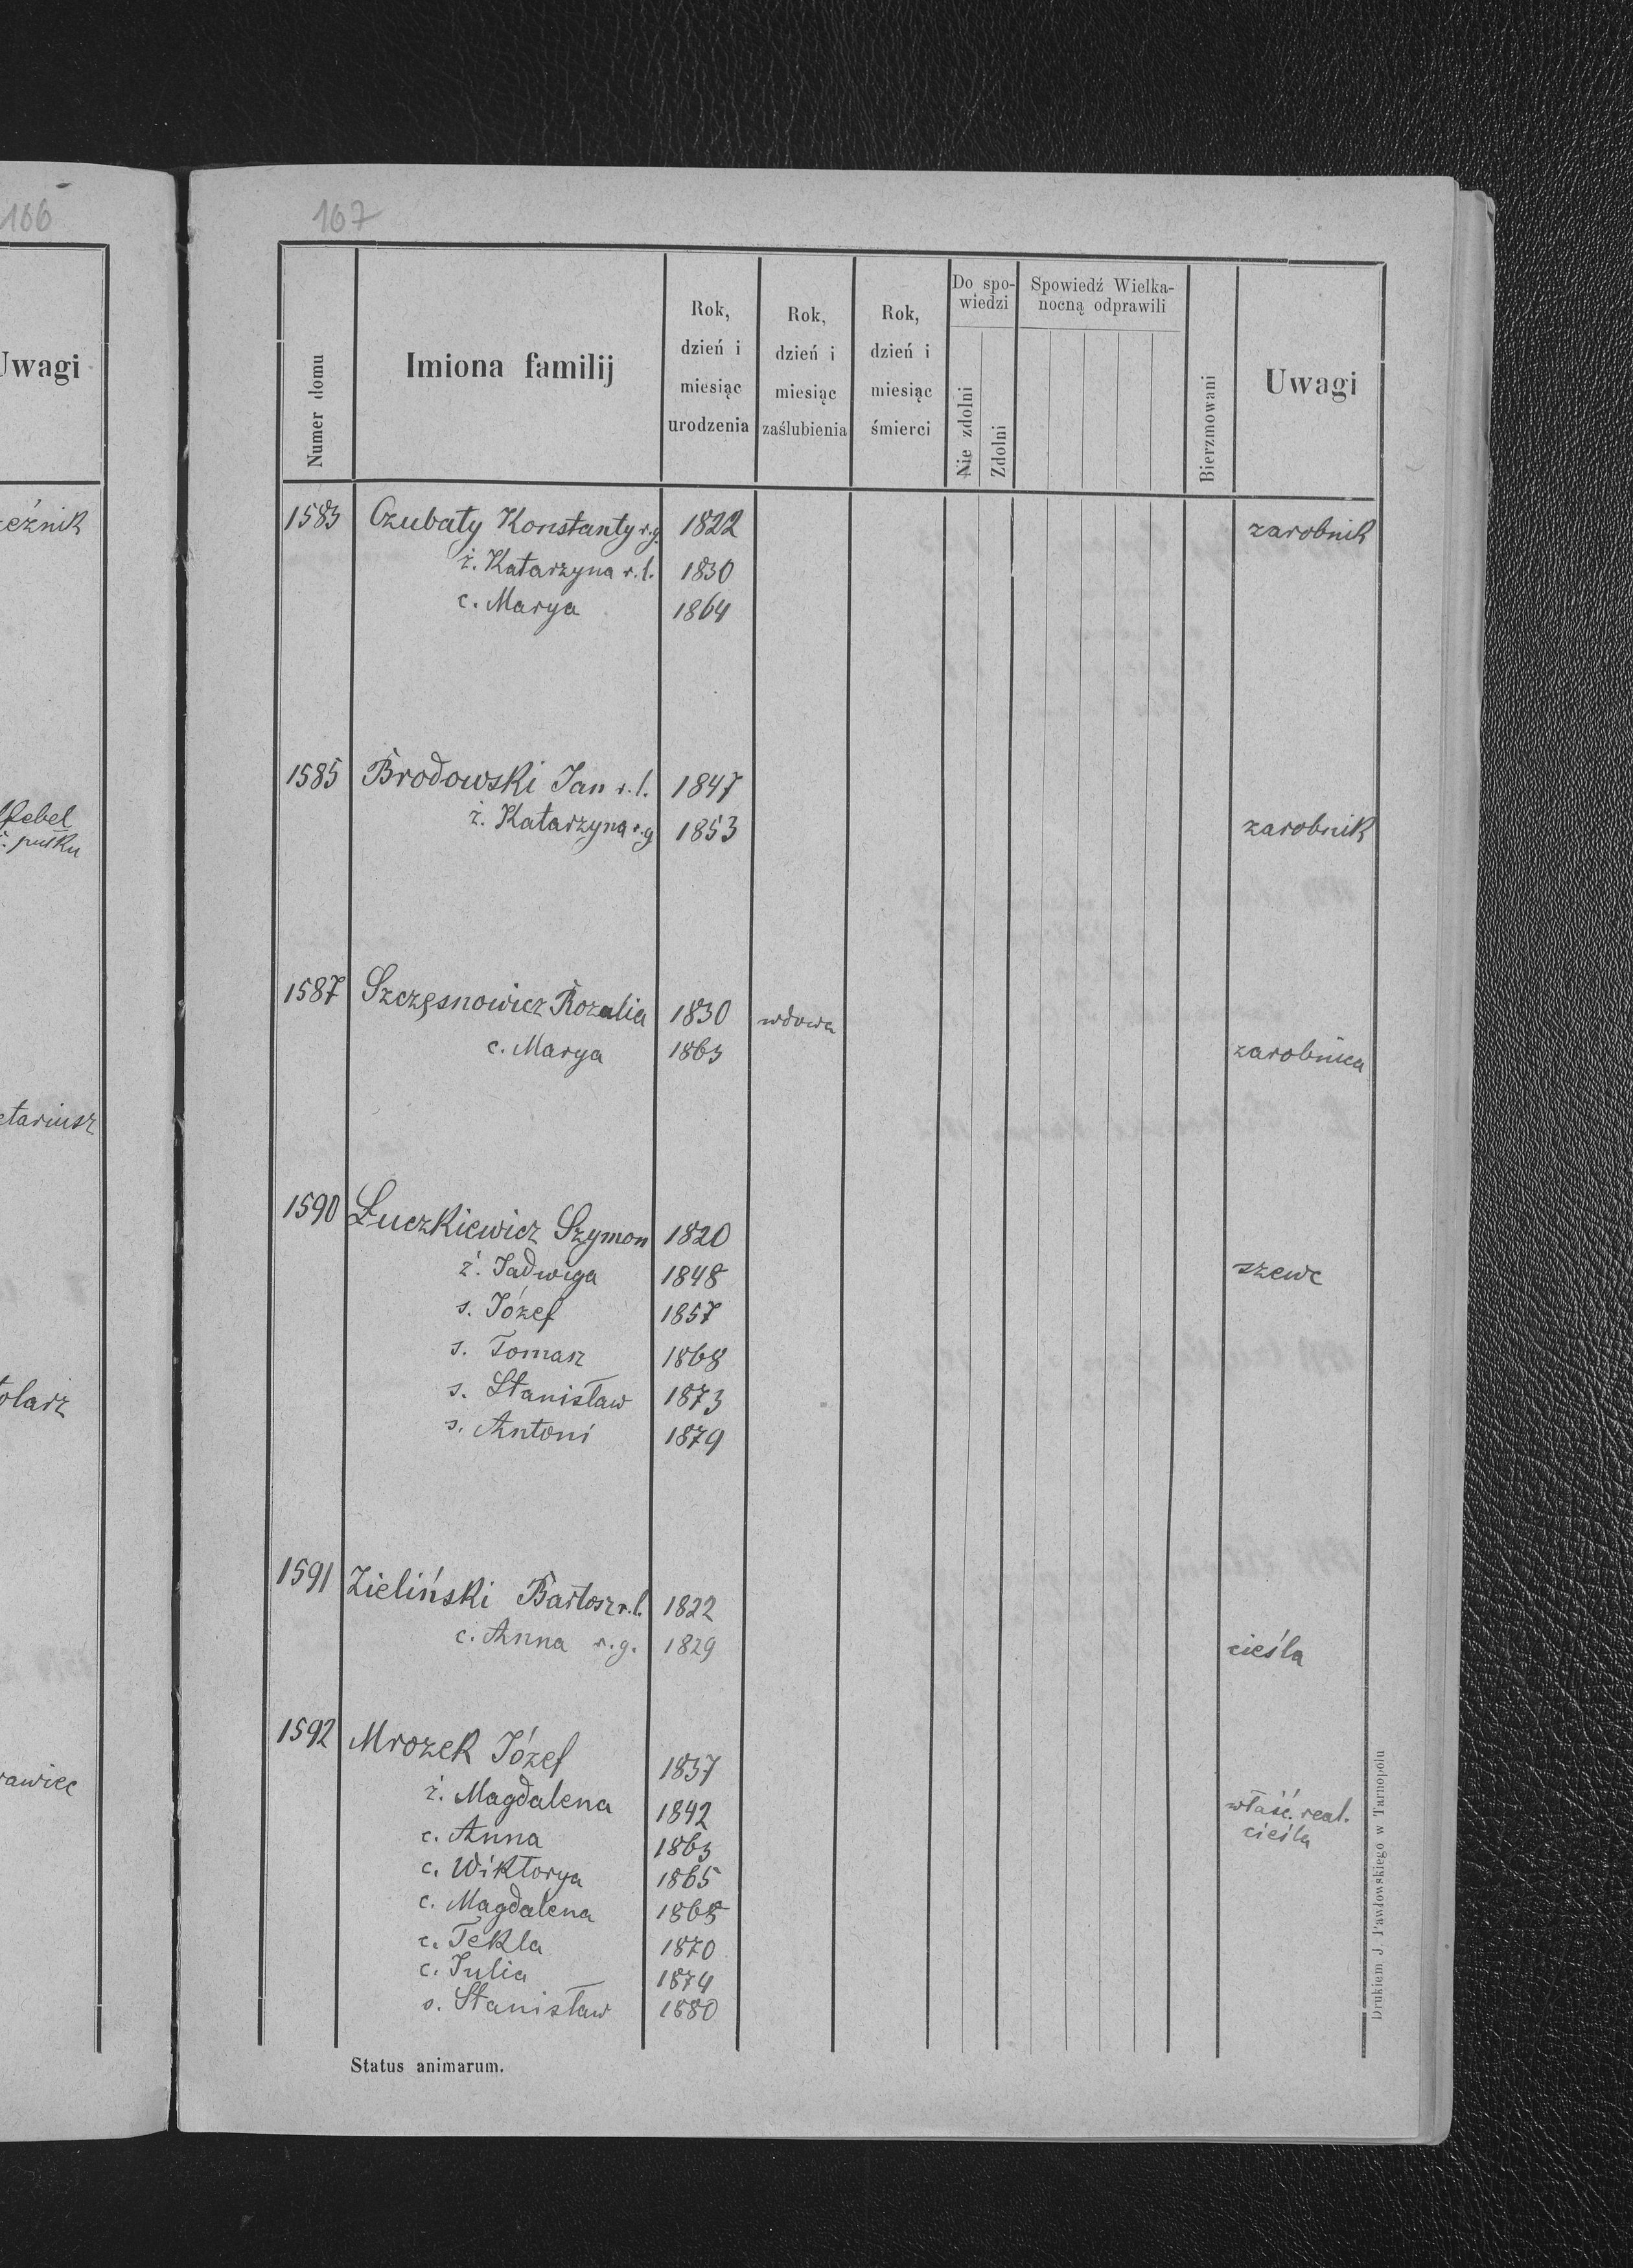 166
Uwagi
pułku
167
Numer domu
Imiona familij
Rok,
dzień i
miesiąc
urodzenia
Rok,
dzień i
miesiąc
zaślubienia
Rok,
dzień i
miesiąc
śmierci
Do spo-
wiedzi
Nie zdolni
Zdolni
Spowiedź Wielka-
nocną odprawili
Bierzmowani
Uwagi
1583 Czubaty Konstanty r.g. 1822 zarobnik
ż. Katarzyna r.l. 1830
c. Marya 1864
1585 Brodowski Jan r.l. 1847
ż. Katarzyna r.g 1853 zarobnik
1587 Szczęsnowicz Rozalia 1830 wdowa
c. Marya 1863 zarobnica
1590 Łuczkiewicz Szymon 1820
ż. Jadwiga 1848 szewc
s. Józef 1857
s. Tomasz 1868
s. Stanisław 1873
s. Antoni 1879
1591 Zieliński Bartosz r.l. 1822
c. Anna r.g. 1829 cieśla
1592 Mrozek Józef 1837
ż. Magdalena 1842 właśc. real.
c. Anna 1863 cieśla
c. Wiktorya 1865
c. Magdalena 1868
c. Tekla 1870
c. Julia 1874
s. Stanisław 1880
Status animarum.
Drukiem J. Pawłowskiego w Tarnopolu